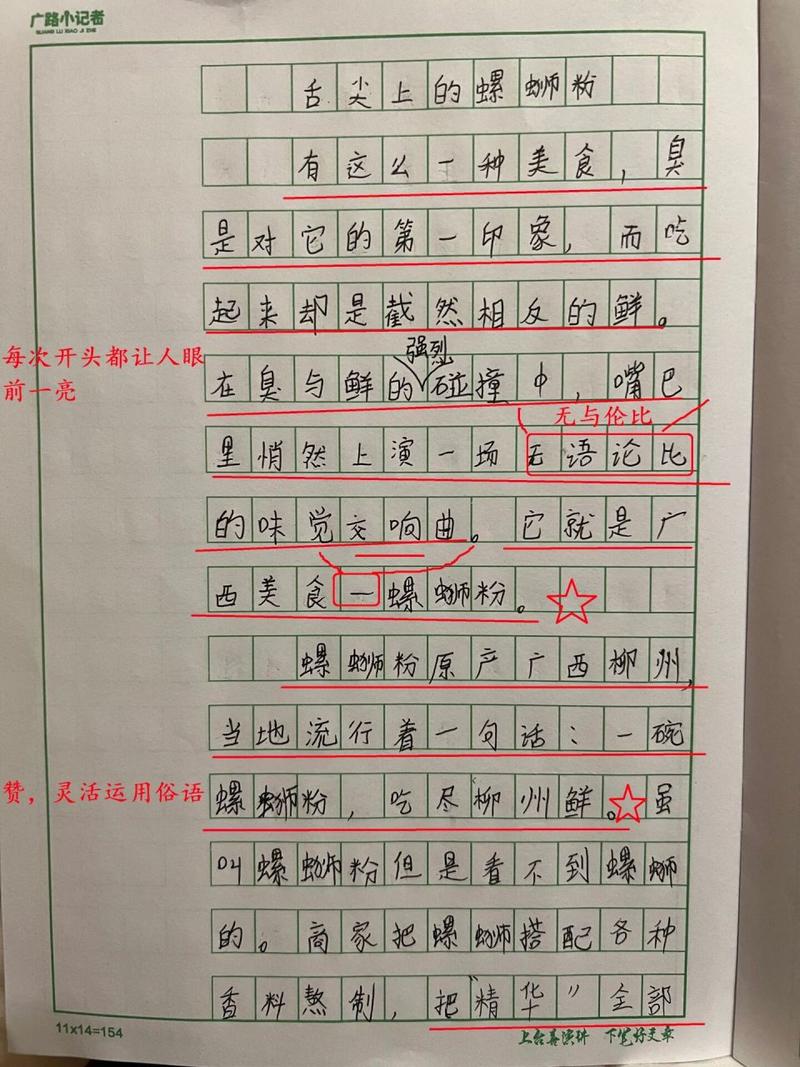 广路小记者
GUANG LU XIAO JI ZHE
舌尖上的螺蛳粉
有这么一种美食，臭
是对它的第一印象，而吃
起来却是截然相反的鲜。
强烈
每次开头都让人眼
前一亮
在臭与鲜的碰撞中，嘴巴
无与伦比
里悄然上演一场无语论比
的味觉交响曲。它就是广
西美食—螺蛳粉。
螺蛳粉原产广西柳州，
当地流行着一句话：一碗
赞，灵活运用俗语
螺蛳粉，吃尽柳州鲜。虽
叫螺蛳粉但是看不到螺蛳
的。商家把螺蛳搭配各种
香料熬制，把“精华”全部
11x14=154
上台善演讲 下笔好文章